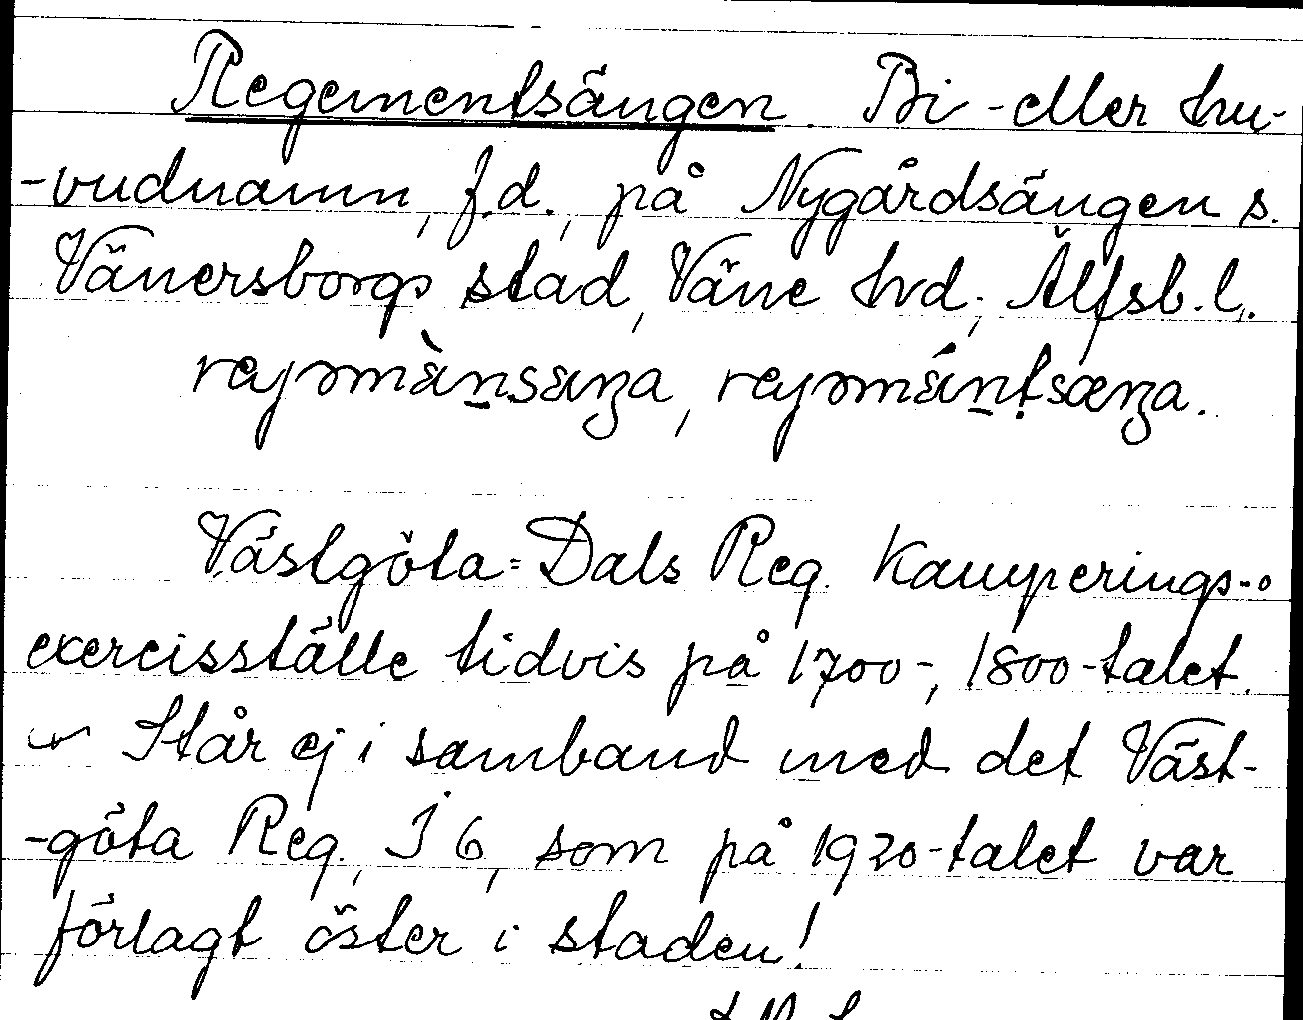 Regementsängen. Bi- eller hu-
-vudnamn, f.d., på Nygårdsängen s.
Vänersborgs stad, Väne hrd, Älfsb. l.
rejəmànsæŋa, rejəmántsæŋa.
Västgöta-Dals Reg. Kamperings- o
exercisställe tidvis på 1700-, 1800-talet.
Står ej i samband med det Väst-
-göta Reg., I 6, som på 1920-talet var
förlagt öster i staden!